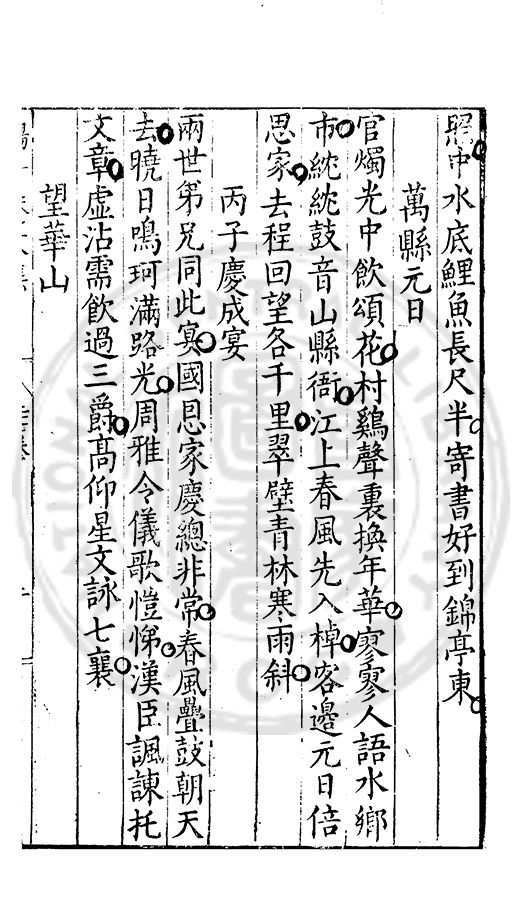 照中水底鯉魚長尺半寄書好到錦亭東
萬縣元日
官燭光中飲頌花村鷄聲裏換年華寥寥人語水鄉
市紞紞鼓音山縣衙江上春風先入棹客邊元日倍
思家去程回望各千里翠壁青林寒雨斜
丙子慶成宴
兩世第兄同此宴國恩家慶總非常春風疊鼓朝天
去曉日鳴珂滿路光周雅令儀歌愷悌漢臣諷諫托
文章虛沾需飲過三爵高仰星文詠七襄
望華山